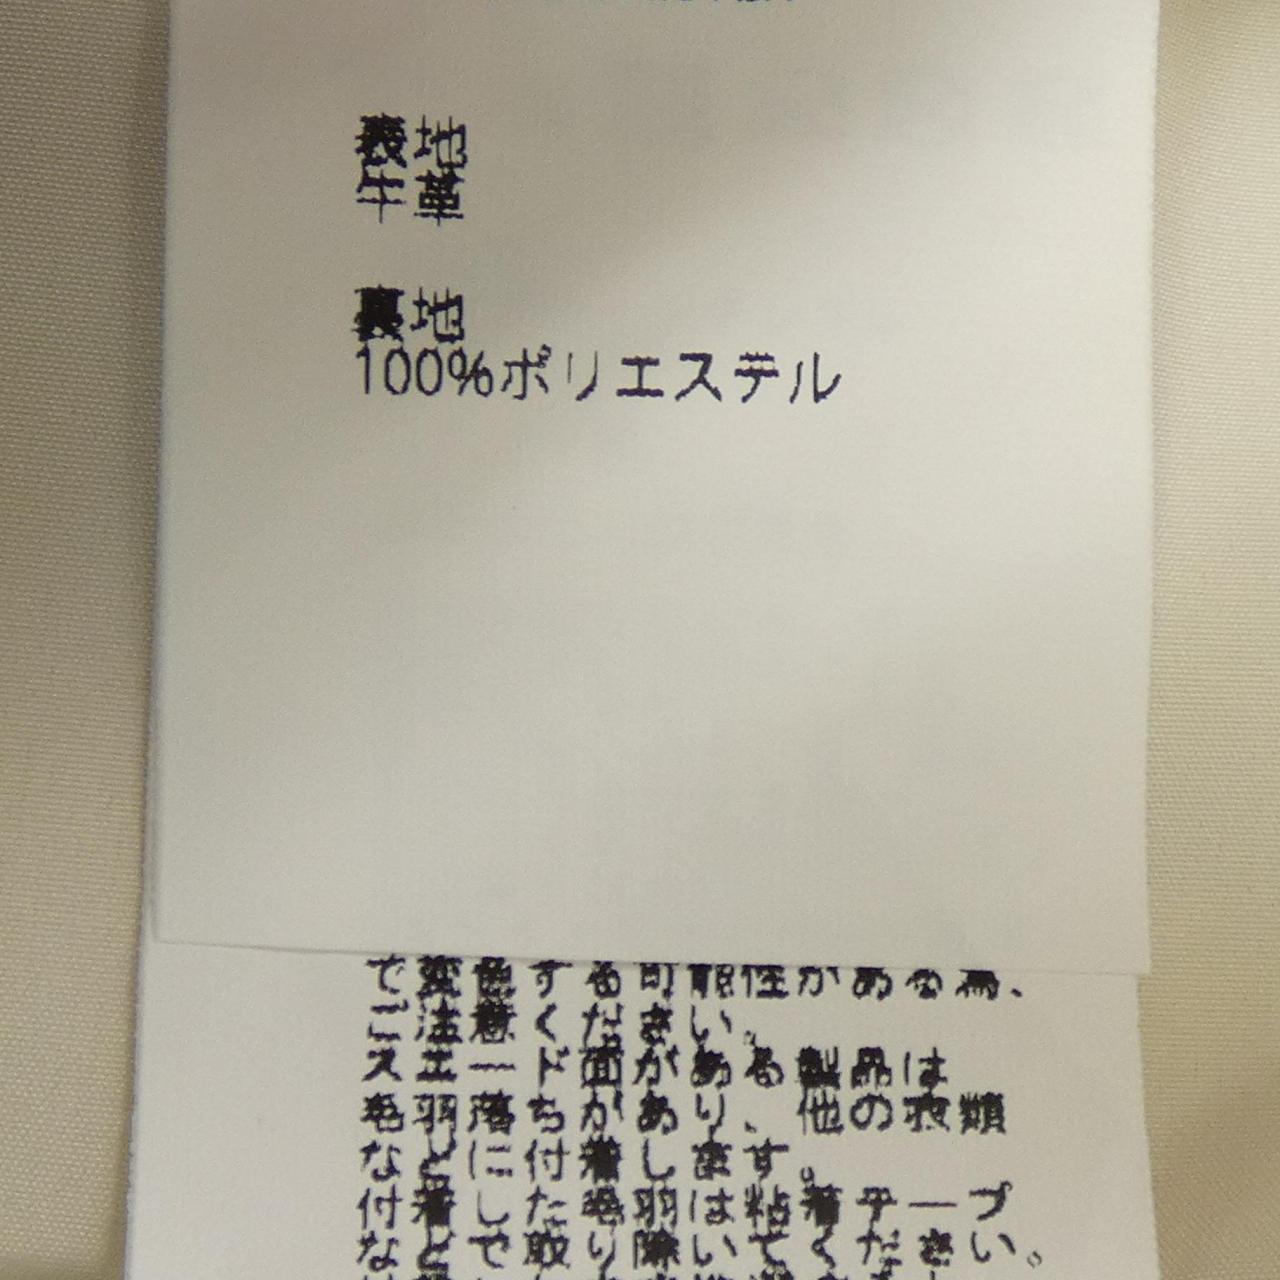 表地
牛革
裏地
100%ポリエステル
で変色する可能性がある為、
ご注意ください。
スエード面がある製品は
毛羽落ちがあり、他の衣類
などに付着します。
付着した毛羽は粘着テープ
などで取り除いてください。